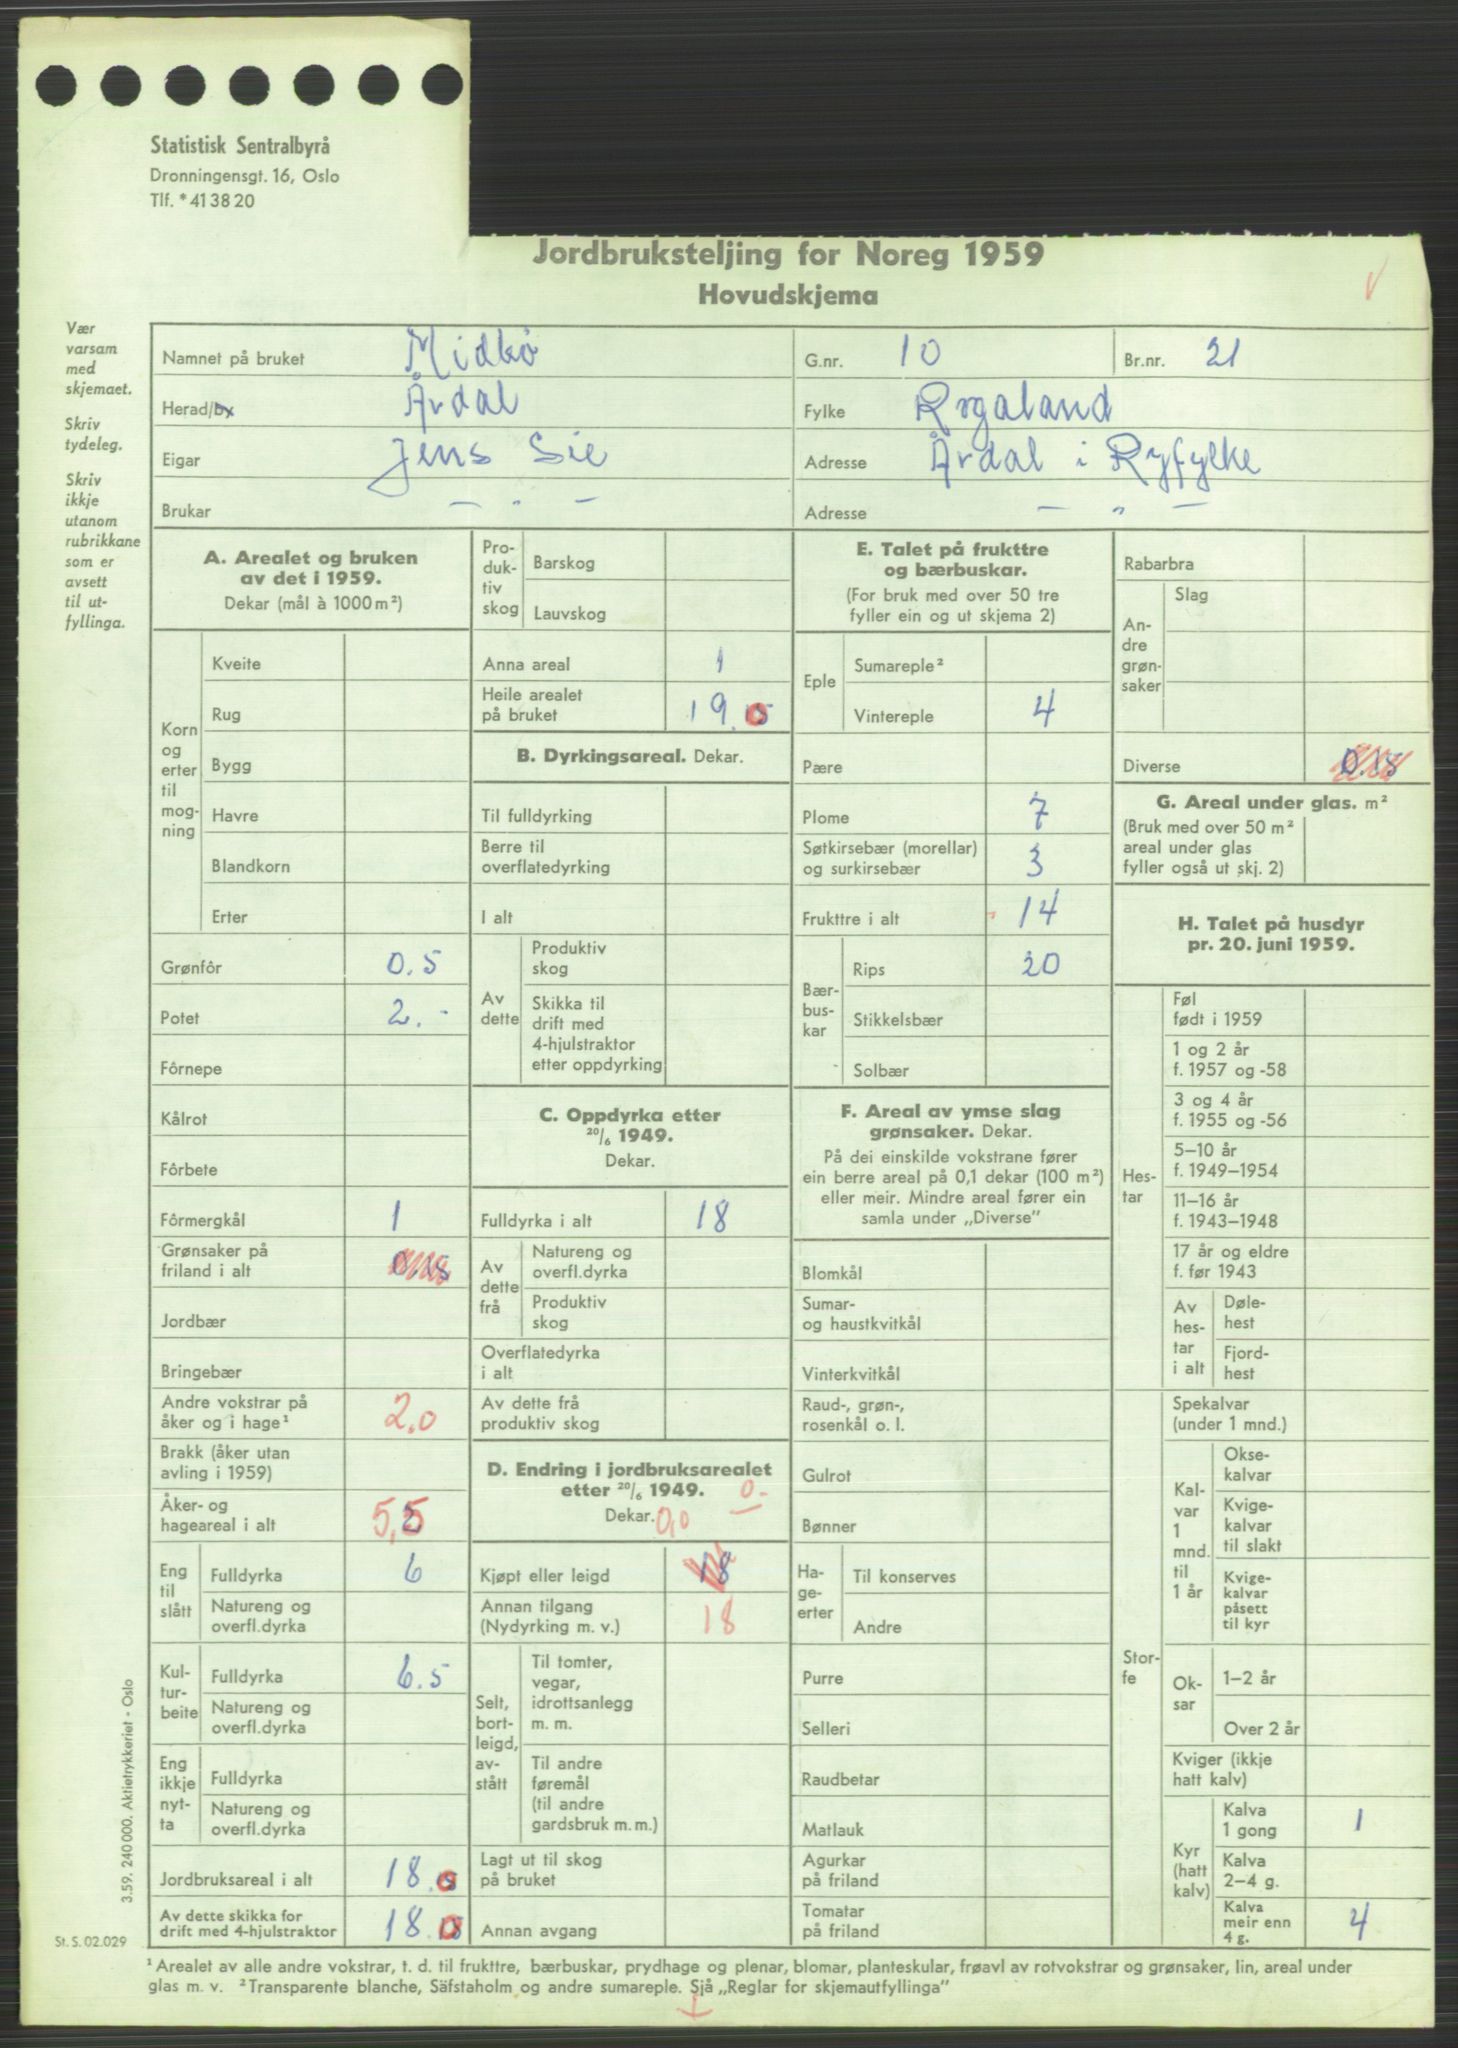 Statistisk Sentralbyrå
Dronningensgt. 16, Oslo
Tlf. * 41 38 20
Jordbruksteljing for Noreg 1959
Hovudskjema
Vær
varsam
med
skjemaet.
Skriv
tydeleg.
Skriv
ikkje
utanom
rubrikkane
som er
avsett
til ut-
fyllinga.
Namnet på bruket Midbø G.nr. 10 Br.nr. 21
Herad/by Årdal Fylke Rogaland
Eigar Jens Sie Adresse Årdal i Ryfylke
Brukar — „ — Adresse — „ —
A. Arealet og bruken
av det i 1959.
Dekar (mål à 1000 m²)
Korn
og
erter
til
mog-
ning
Kveite
Rug
Bygg
Havre
Blandkorn
Erter
Grønfôr 0.5
Potet 2.-
Fôrnepe
Kålrot
Fôrbete
Fôrmergkål 1
Grønsaker på
friland i alt 0.15
Jordbær
Bringebær
Andre vokstrar på
åker og i hage¹ 2,0
Brakk (åker utan
avling i 1959)
Åker- og
hageareal i alt 5,5
Eng
til
slått
Fulldyrka 6
Natureng og
overfl.dyrka
Kul-
tur-
beite
Fulldyrka 6.5
Natureng og
overfl.dyrka
Eng
ikkje
nyt-
ta
Fulldyrka
Natureng og
overfl.dyrka
Jordbruksareal i alt 18.0
Av dette skikka for
drift med 4-hjulstraktor 18.0
Pro-
duk-
tiv
skog
Barskog
Lauvskog
Anna areal 1
Heile arealet
på bruket 19.0
B. Dyrkingsareal. Dekar.
Til fulldyrking
Berre til
overflatedyrking
I alt
Av
dette
Produktiv
skog
Skikka til
drift med
4-hjulstraktor
etter oppdyrking
C. Oppdyrka etter
20/6 1949.
Dekar.
Fulldyrka i alt 18
Av
dette
frå
Natureng og
overfl.dyrka
Produktiv
skog
Overflatedyrka
i alt
Av dette frå
produktiv skog
D. Endring i jordbruksarealet
etter 20/6 1949. 0-
Dekar. 0,0
Kjøpt eller leigd 18
Annan tilgang
(Nydyrking m. v.) 18
Selt,
bort-
leigd,
av-
stått
Til tomter,
vegar,
idrottsanlegg
m. m.
Til andre
føremål
(til andre
gardsbruk m. m.)
Lagt ut til skog
på bruket
Annan avgang
E. Talet på frukttre
og bærbuskar.
(For bruk med over 50 tre
fyller ein og ut skjema 2)
Eple
Sumareple²
Vintereple 4
Pære
Plome 7
Søtkirsebær (morellar)
og surkirsebær 3
Frukttre i alt 14
Bær-
bus-
kar
Rips 20
Stikkelsbær
Solbær
F. Areal av ymse slag
grønsaker. Dekar.
På dei einskilde vokstrane fører
ein berre areal på 0,1 dekar (100 m²)
eller meir. Mindre areal fører ein
samla under „Diverse”
Blomkål
Sumar-
og haustkvitkål
Vinterkvitkål
Raud-, grøn-,
rosenkål o. l.
Gulrot
Bønner
Ha-
ge-
erter
Til konserves
Andre
Purre
Selleri
Raudbetar
Matlauk
Agurkar
på friland
Tomatar
på friland
Rabarbra
An-
dre
grøn-
saker
Slag
Diverse 0.15
G. Areal under glas. m²
(Bruk med over 50 m²
areal under glas
fyller også ut skj. 2)
H. Talet på husdyr
pr. 20. juni 1959.
Hes-
tar
Føl
født i 1959
1 og 2 år
f. 1957 og -58
3 og 4 år
f. 1955 og -56
5–10 år
f. 1949–1954
11–16 år
f. 1943–1948
17 år og eldre
f. før 1943
Av
hes-
tar
i alt
Døle-
hest
Fjord-
hest
Stor-
fe
Spekalvar
(under 1 mnd.)
Kal-
var
1
mnd.
til
1 år
Okse-
kalvar
Kvige-
kalvar
til slakt
Kvige-
kalvar
påsett
til kyr
Ok-
sar
1–2 år
Over 2 år
Kviger (ikkje
hatt kalv)
Kyr
(hatt
kalv)
Kalva
1 gong 1
Kalva
2–4 g.
Kalva
meir enn
4 g. 4
3.59. 240 000. Aktietrykkeriet - Oslo
St. S. 02.029
¹ Arealet av alle andre vokstrar, t. d. til frukttre, bærbuskar, prydhage og plenar, blomar, planteskular, frøavl av rotvokstrar og grønsaker, lin, areal under
glas m. v. ² Transparente blanche, Säfstaholm og andre sumareple. Sjå „Reglar for skjemautfyllinga”